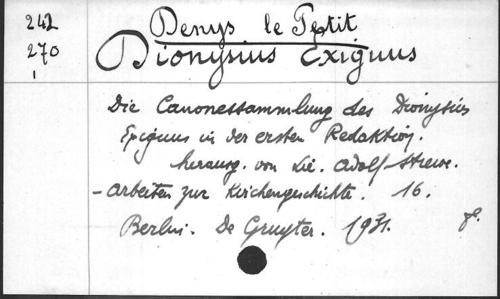 242 Denys le Petit
270 Dionysius Exiguus
Die Canonessammlung des Dionysius
Exiguus in der ersten Redaktion.
herausg. von Lic. Adolf Strewe.
- Arbeiten zur Kirchengeschichte. 16.
Berlin. De Gruyter. 1931.